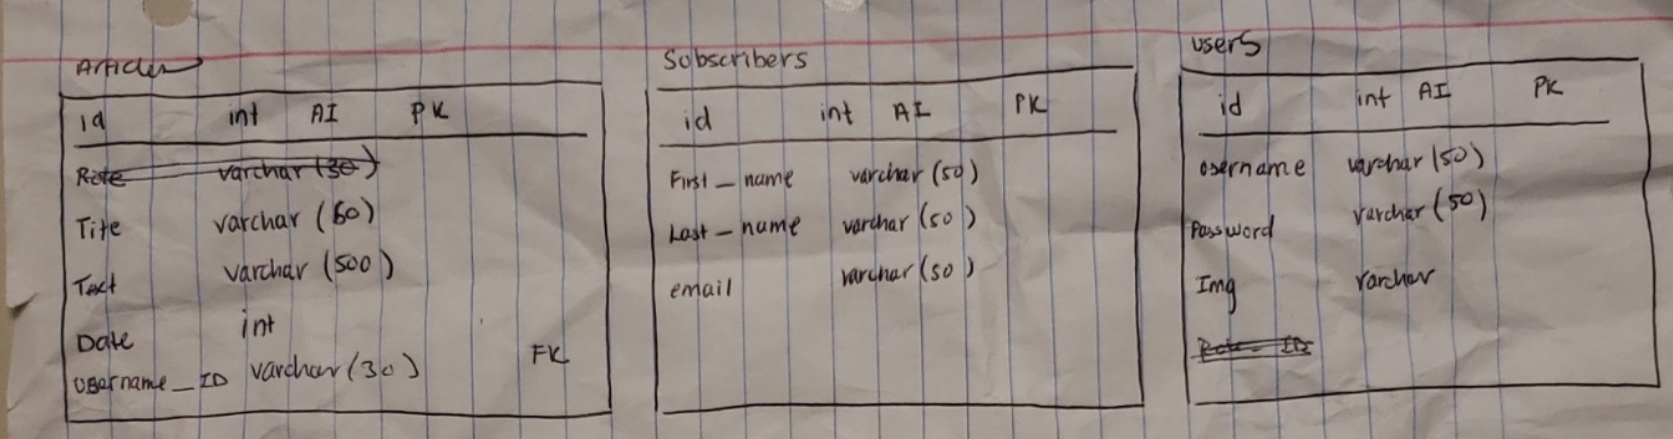 Articles
id int AI PK
Role varchar (30)
Tite varchar (60)
Text varchar (500)
Date int
Username_ID varchar (30) FK
Subscribers
id int AI PK
First_name varchar (50)
Last_name varchar (50)
email varchar (50)
users
id int AI PK
username varchar (50)
Password varchar (50)
Img varchar